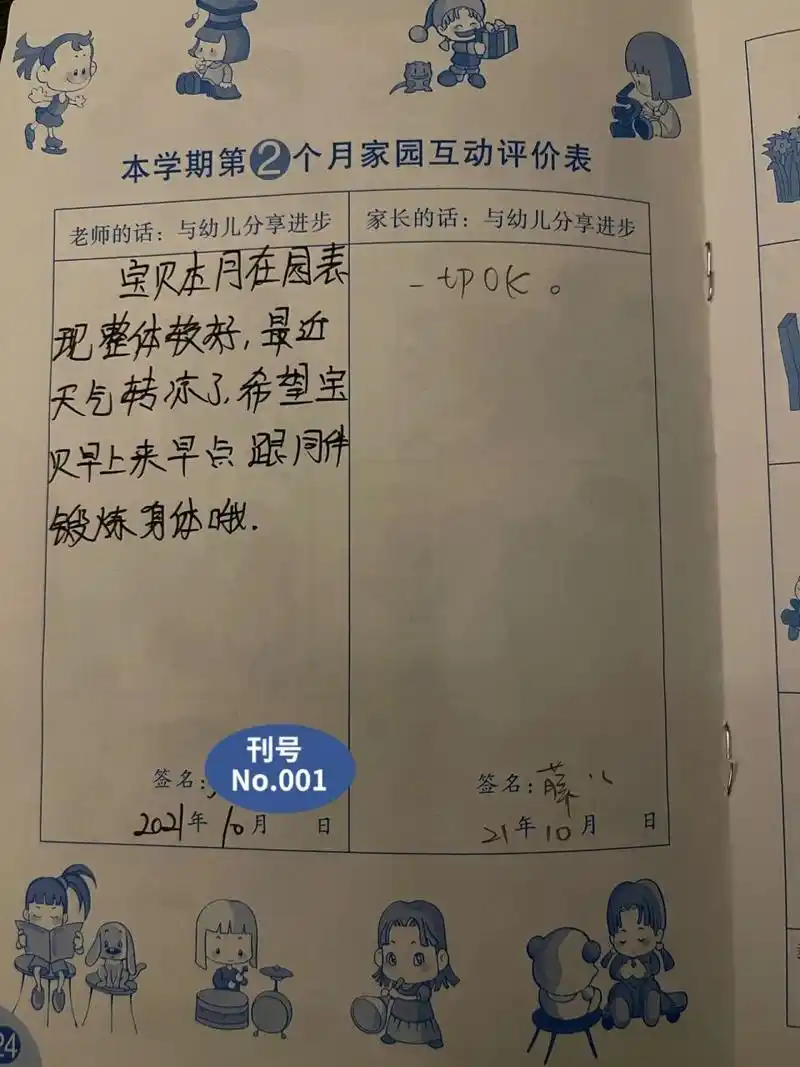 本学期第2个月家园互动评价表
老师的话：与幼儿分享进步
宝贝本月在园表
现整体较好,最近
天气转凉了,希望宝
贝早上来早点 跟同伴
锻炼身体哦.
签名:
2021年10月 日
家长的话：与幼儿分享进步
一切OK。
签名:薛
21年10月 日
刊号
No.001
24